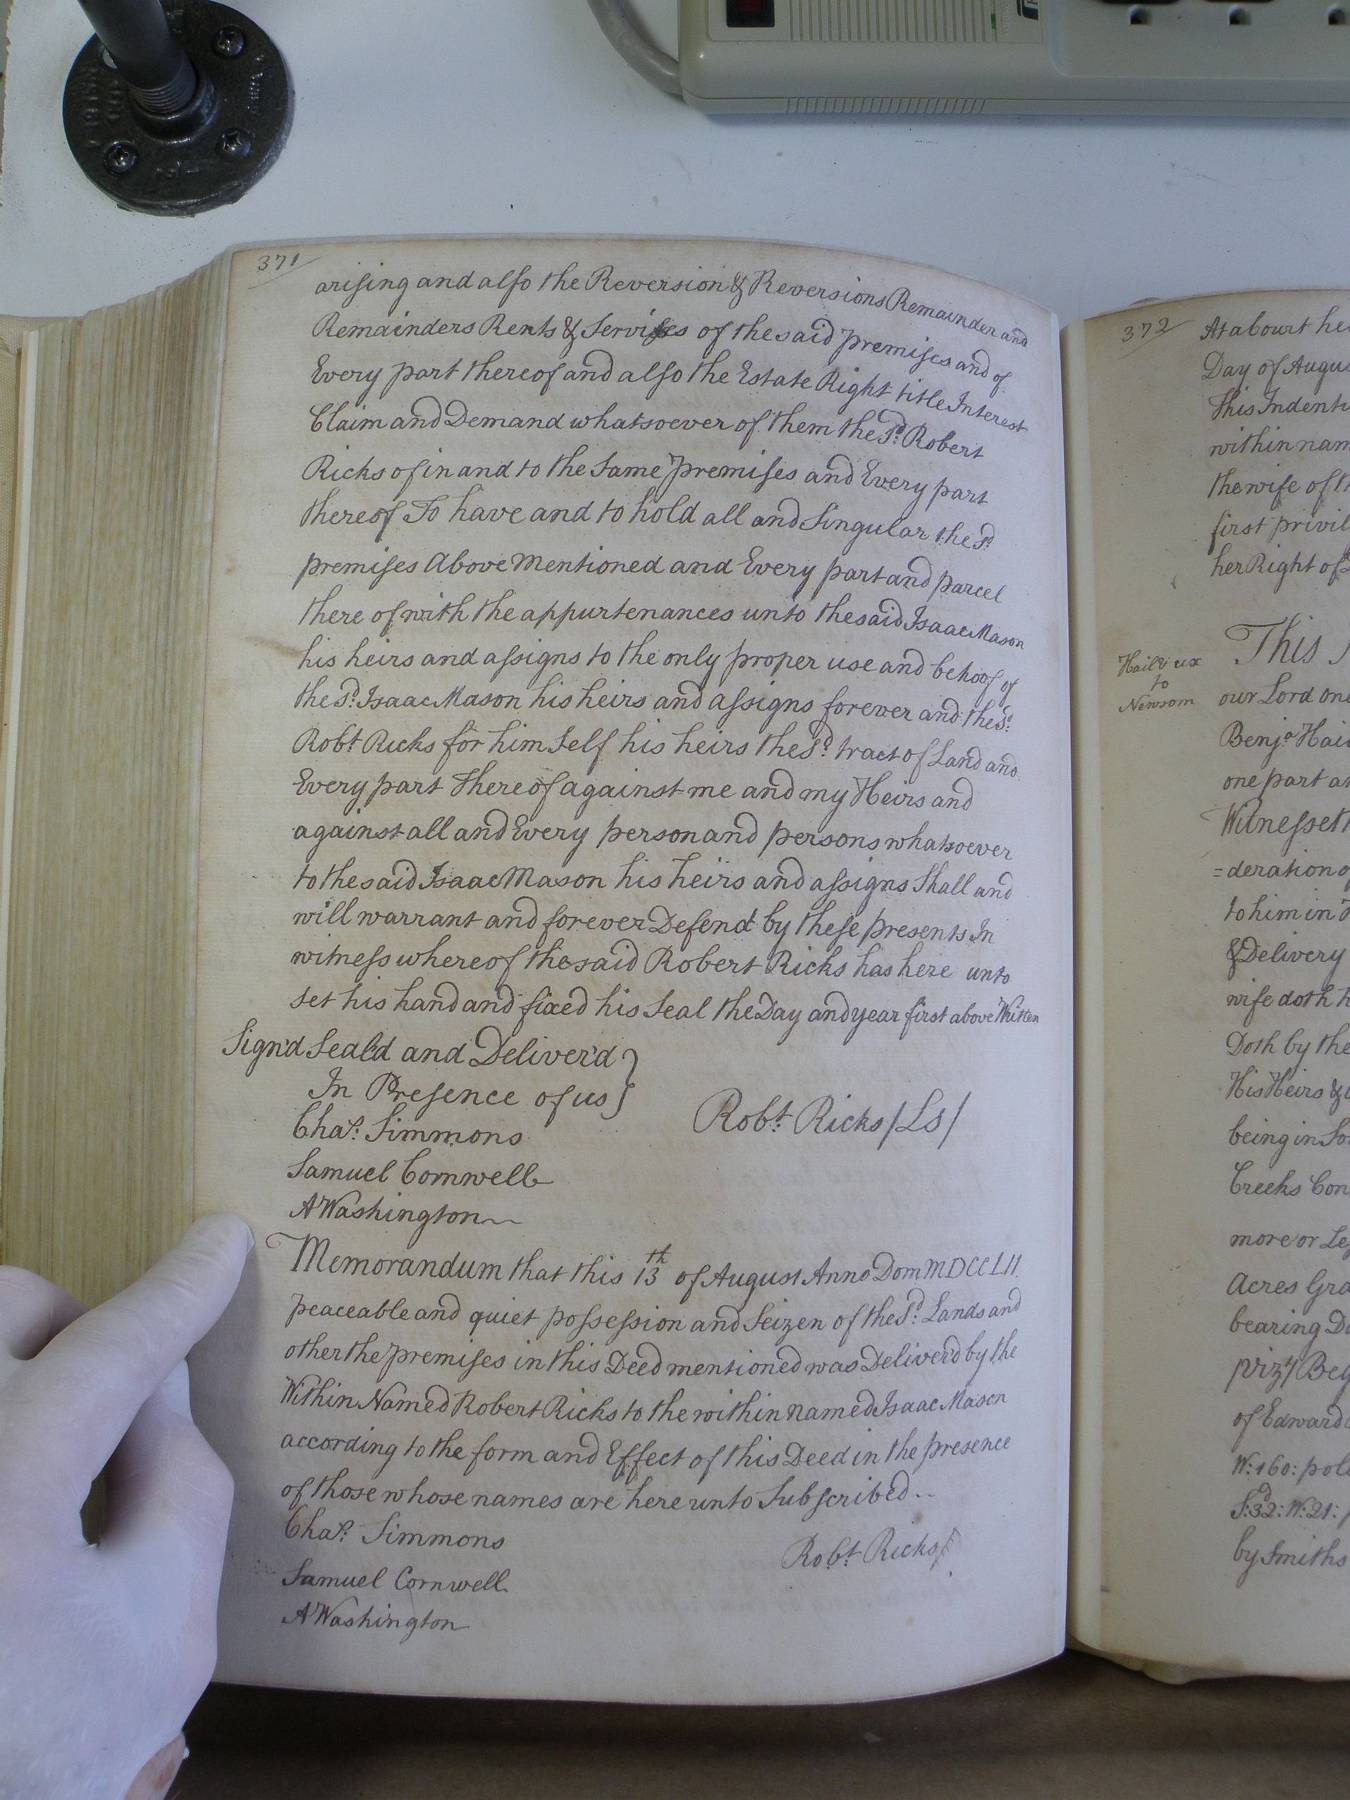 371
arising and also the Reversion & Reversions Remainder and
Remainders Rents & Services of the said premises and of
Every part thereof and also the Estate Right title Interest
Claim and Demand whatsoever of them the Sd. Robert
Ricks of in and to the Same premises and Every part
thereof To have and to hold all and Singular the Sd.
premises Above Mentioned and Every part and parcel
there of with the appurtenances unto the said Isaac Mason
his heirs and assigns to the only proper use and behoof of
the Sd. Isaac Mason his heirs and assigns forever and the Sd.
Robt. Ricks for him Self his heirs the Sd. tract of Land and
Every part thereof against me and my Heirs and
against all and Every person and persons whatsoever
to the said Isaac Mason his heirs and assigns Shall and
will warrant and forever Defend by these presents In
witness whereof the said Robert Ricks has here unto
set his hand and fixed his Seal the Day and year first above Written
Sign'd Seal'd and Deliver'd
In Presence of us
Robt. Ricks /LS/
Chas. Simmons
Samuel Cornwell
A Washington
Memorandum that this 13th of August Anno Dom MDCCLII
peaceable and quiet possession and Seizen of the Sd. Lands and
other the premises in this Deed mentioned was Deliver'd by the
Within Named Robert Ricks to the within named Isaac Mason
according to the form and Effect of this Deed in the presence
of those whose names are here unto Subscribed..
Chas. Simmons
Robt. Ricks
Samuel Cornwell
A Washington
372
At a Court he
Day of Augus
This Indent
within nam
the wife of th
first privil
her Right of
Hail & ux
to
Newsom
This
our Lord one
Benja. Hai
one part an
Witnesseth
=deration of
to him in
& Delivery
wife doth h
Doth by the
His Heirs &
being in So
Creeks Con
more or Les
Acres Gra
bearing Da
/Viz/ Beg
of Edward
W: 160: pol
S:32: W:21:
by Smiths